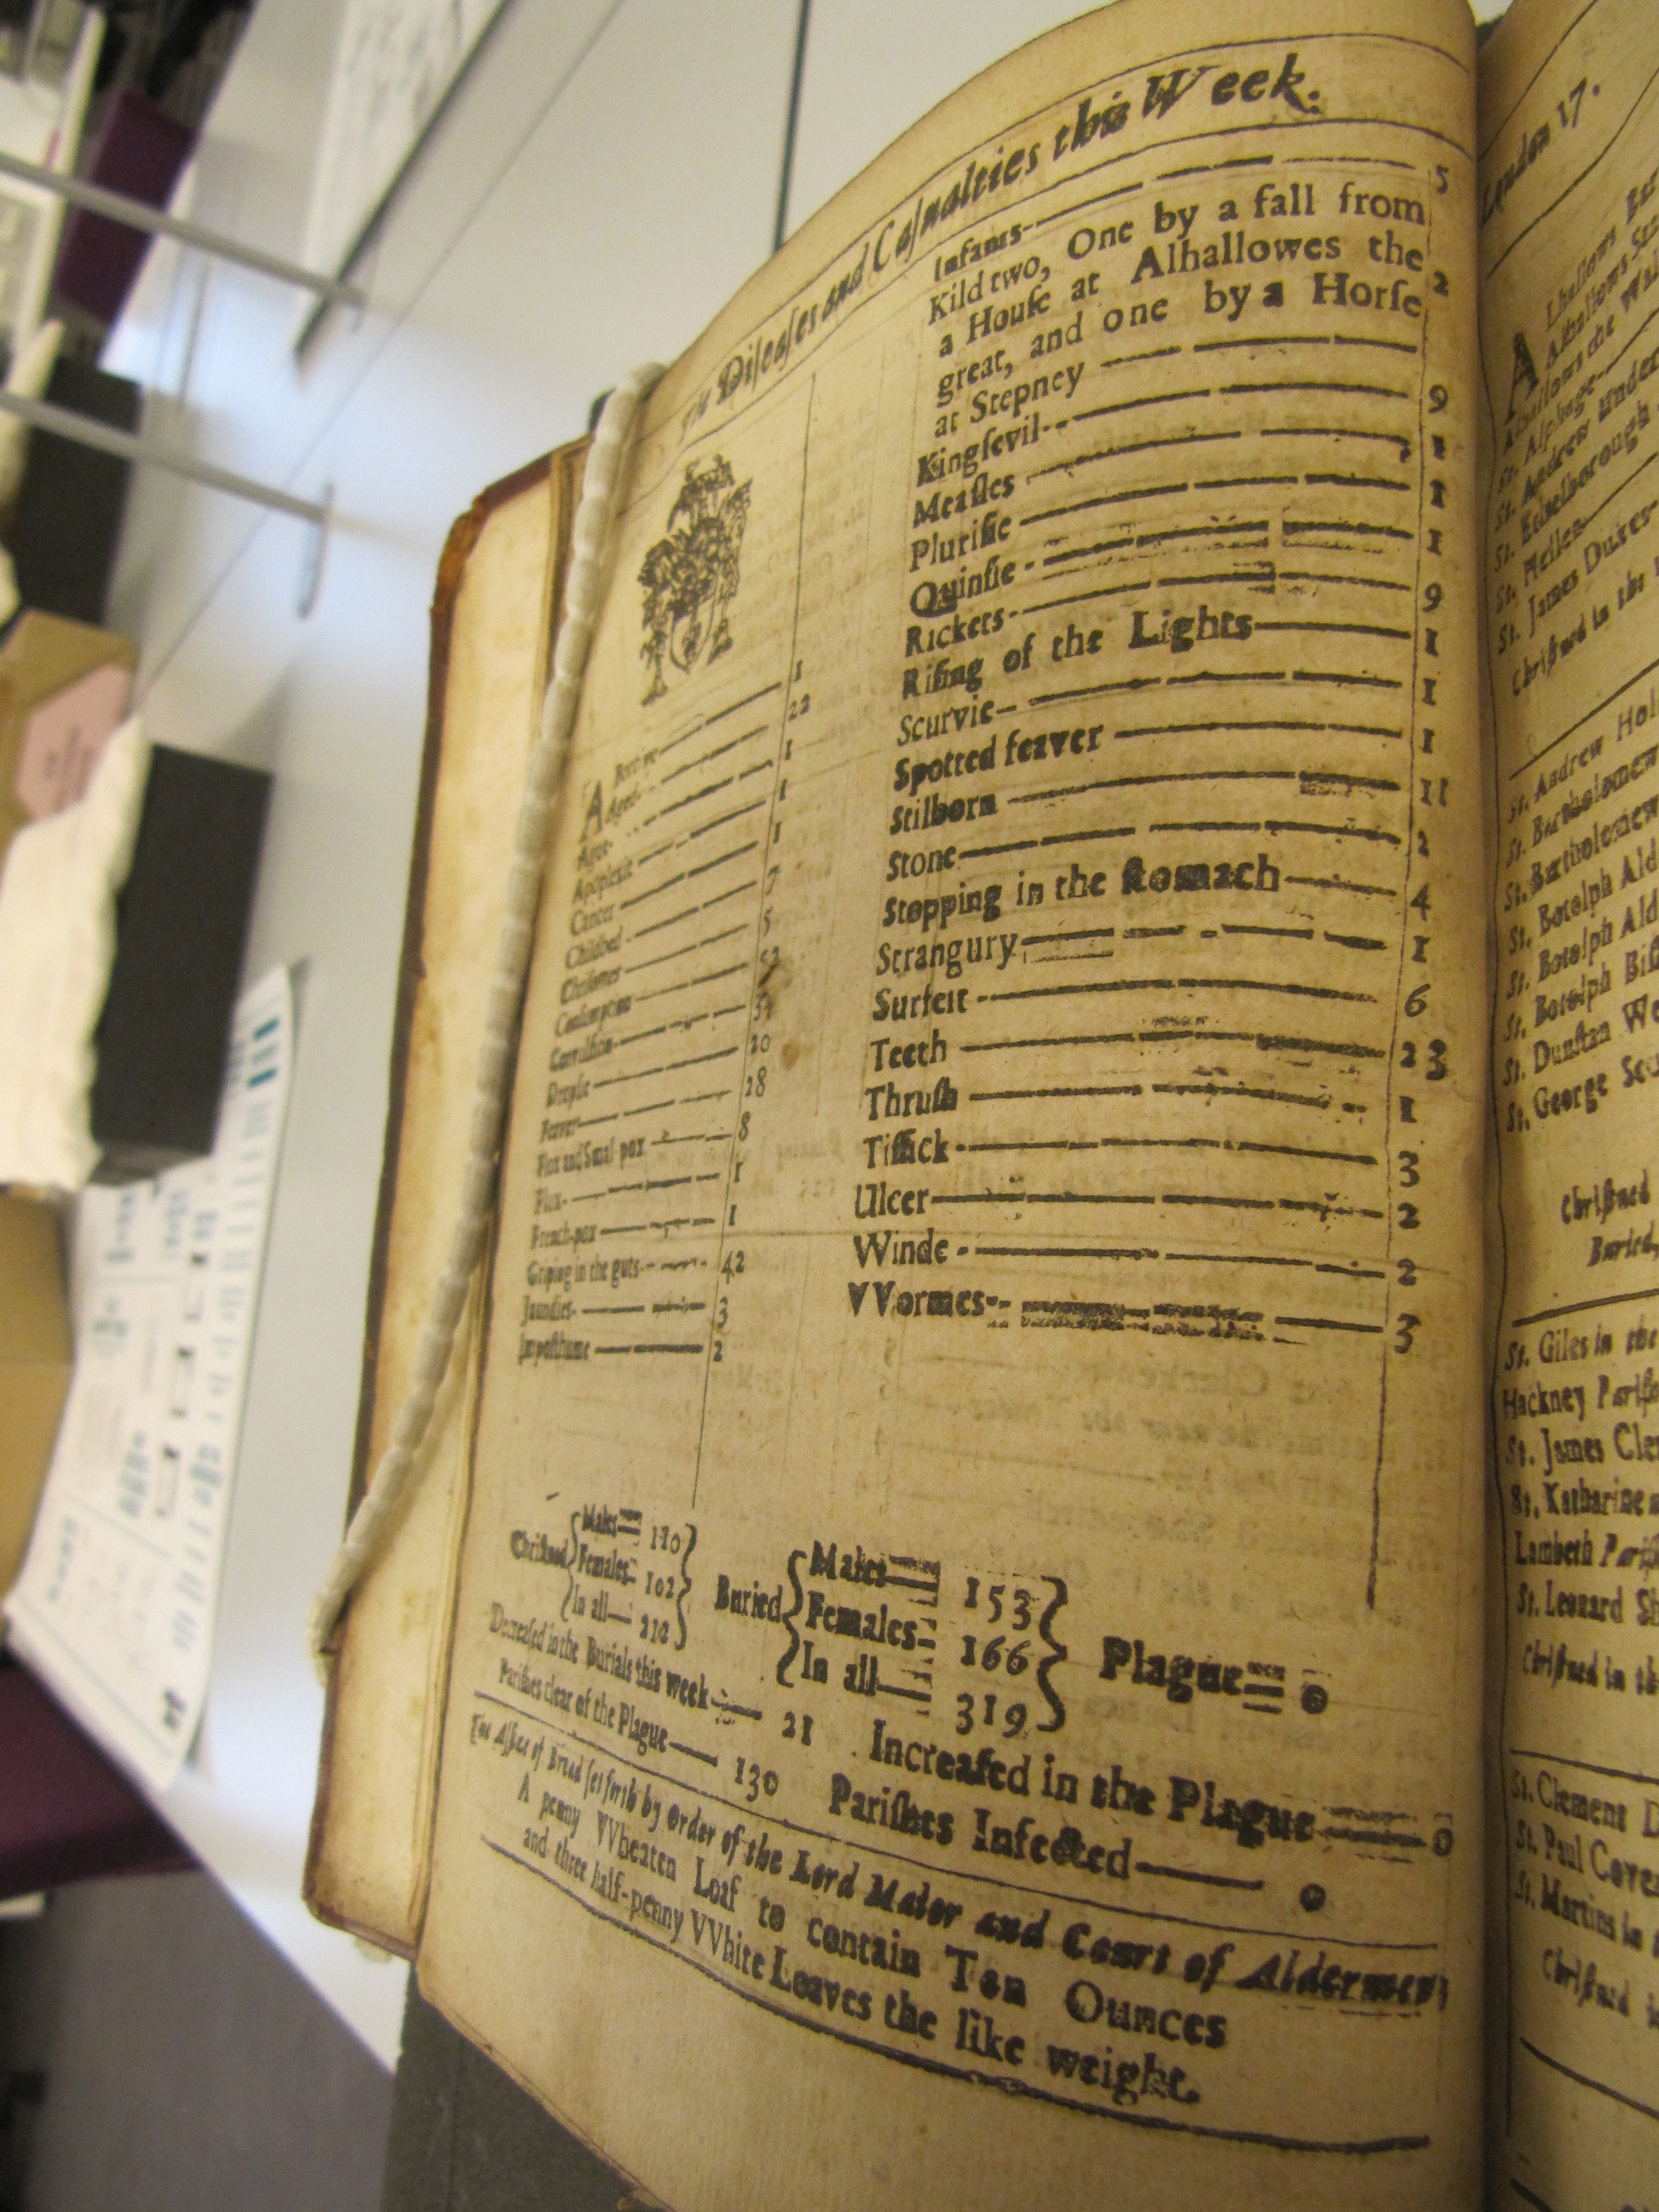 The Diſeaſes and Caſualties this Week.
Abortive 1
Aged 22
Ague 1
Apoplexie 1
Cancer 1
Childbed 7
Chriſomes 5
Conſumption 52
Convulſion 34
Dropſie 20
Feaver 28
Flox and Small pox 8
Flux 1
French-pox 1
Griping in the guts 42
Jaundies 3
Impoſthume 2
Infants 5
Kild two, One by a fall from
a Houſe at Alhallowes the
great, and one by a Horſe
at Stepney 2
Kingſevil 9
Meaſles 1
Pluriſie 1
Quinſie 1
Rickets 9
Riſing of the Lights 1
Scurvie 1
Spotted feaver 1
Stilborn 11
Stone 2
Stopping in the ſtomach 4
Strangury 1
Surfeit 6
Teeth 23
Thruſh 1
Tiſſick 3
Ulcer 2
Winde 2
VVormes 3
Chriſtned { Males 110
Females 102
In all 212 }
Buried { Males 153
Females 166
In all 319 } Plague 0
Decreaſed in the Burials this week 21 Increaſed in the Plague 0
Pariſhes clear of the Plague 130 Pariſhes Infected 0
The Aſſize of Bread ſet forth by Order of the Lord Maior and Court of Aldermen,
A penny VVheaten Loaf to contain Ten Ounces
and three half-penny VVhite Loaves the like weight.
London 17.
Alhallows
Alhallows
Alhallows the Wal
St. Alphage
St. Andrew Under
St. Ethelborough
St. Hellen
St. James Dukes
Chriſtned in the
St. Andrew Hol
St. Bartholomew
St. Bartholomew
St. Botolph Ald
St. Botolph Ald
St. Botolph Biſ
St. Dunſtan We
St. George
Chriſtned
Buried,
St. Giles in the
Hackney Pariſh
St. James Cle
St. Katharine
Lambeth Pariſ
St. Leonard Sh
Chriſtned in th
St. Clement D
St. Paul Cove
St. Martins in
Chriſtned